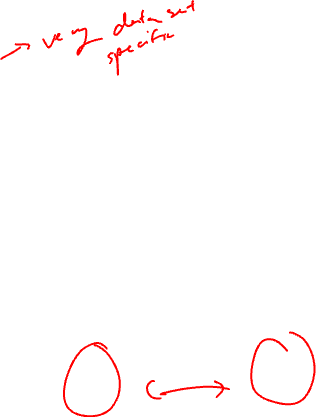 → very data set
specific